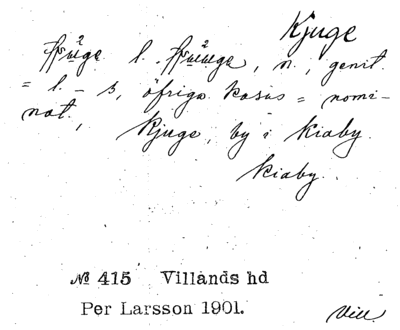 Kjuge
l. , n., genit.
= l. - s, öfriga kasus = nomi-
nat., Kjuge, by i Kiaby.
Kiaby.
№ 415 Villands hd
Per Larsson 1901.
Vill